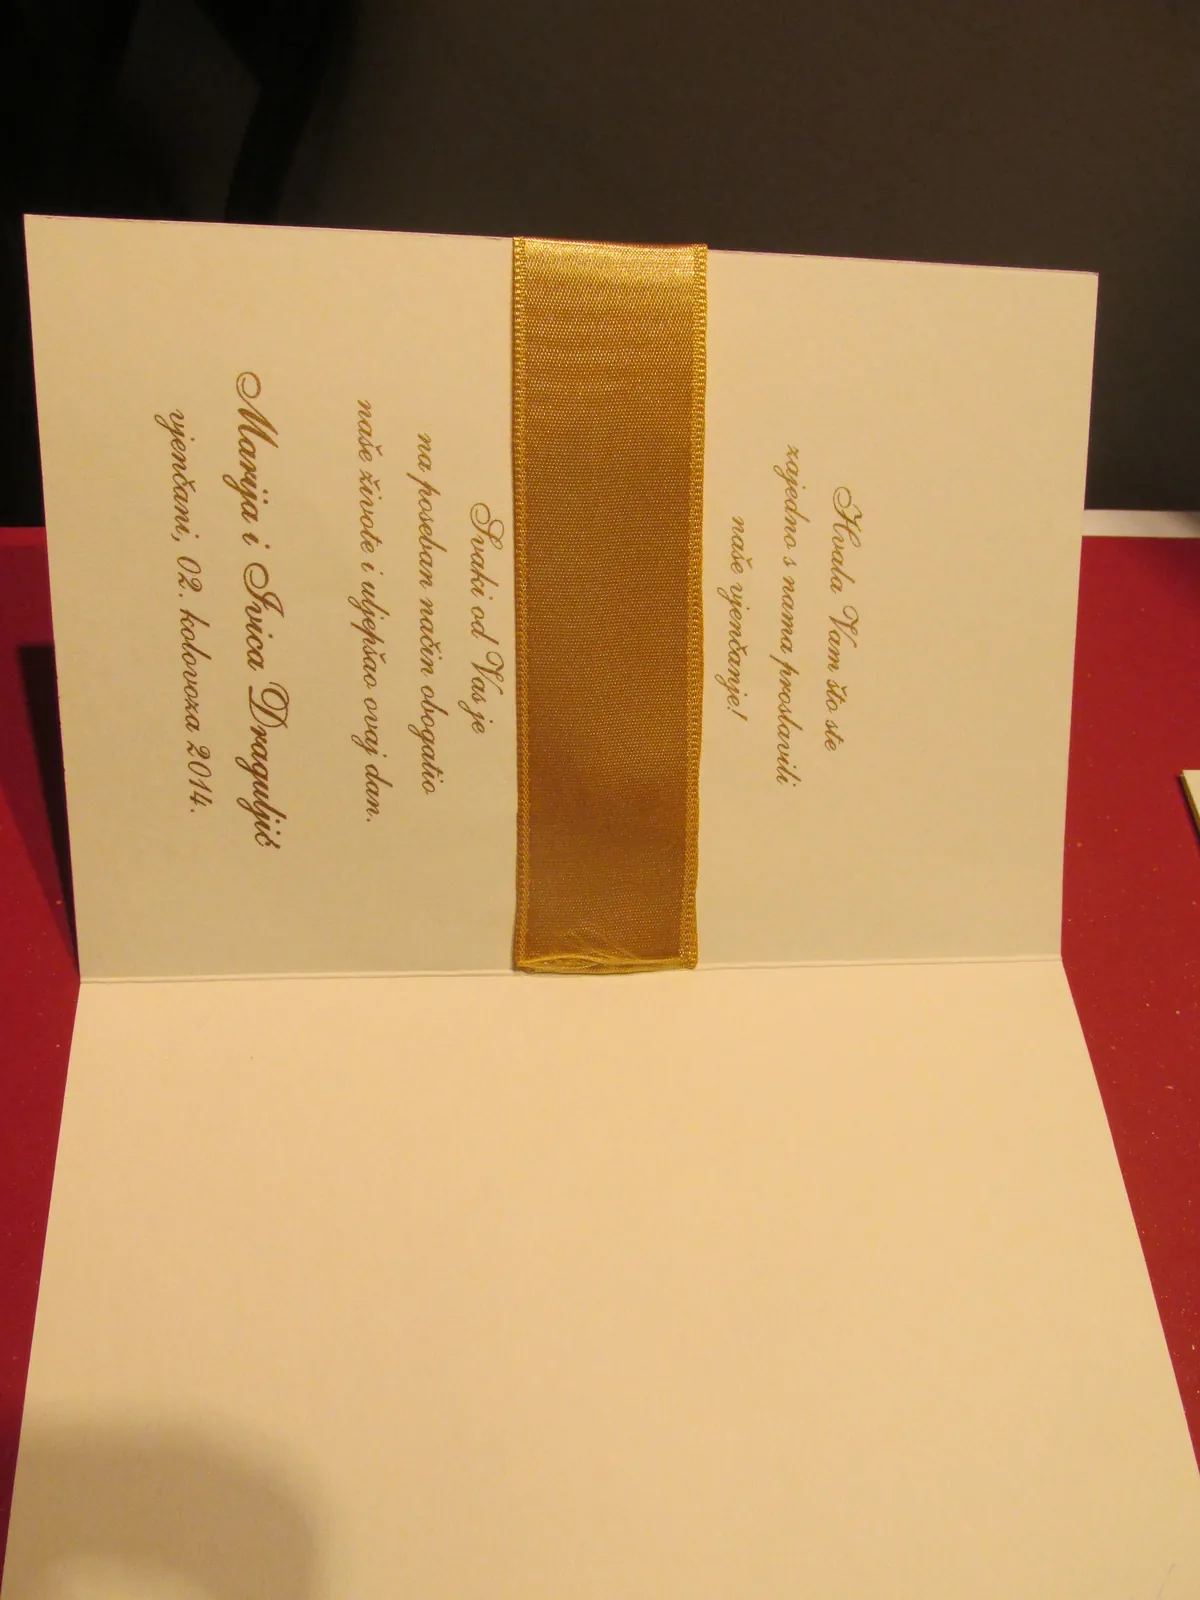 Hvala Vam što ste
zajedno s nama proslavili
naše vjenčanje!
Svaki od Vas je
na poseban način obogatio
naše živote i uljepšao ovaj dan.
Marija i Ivica Draguljić
vjenčani, 02. kolovoza 2014.